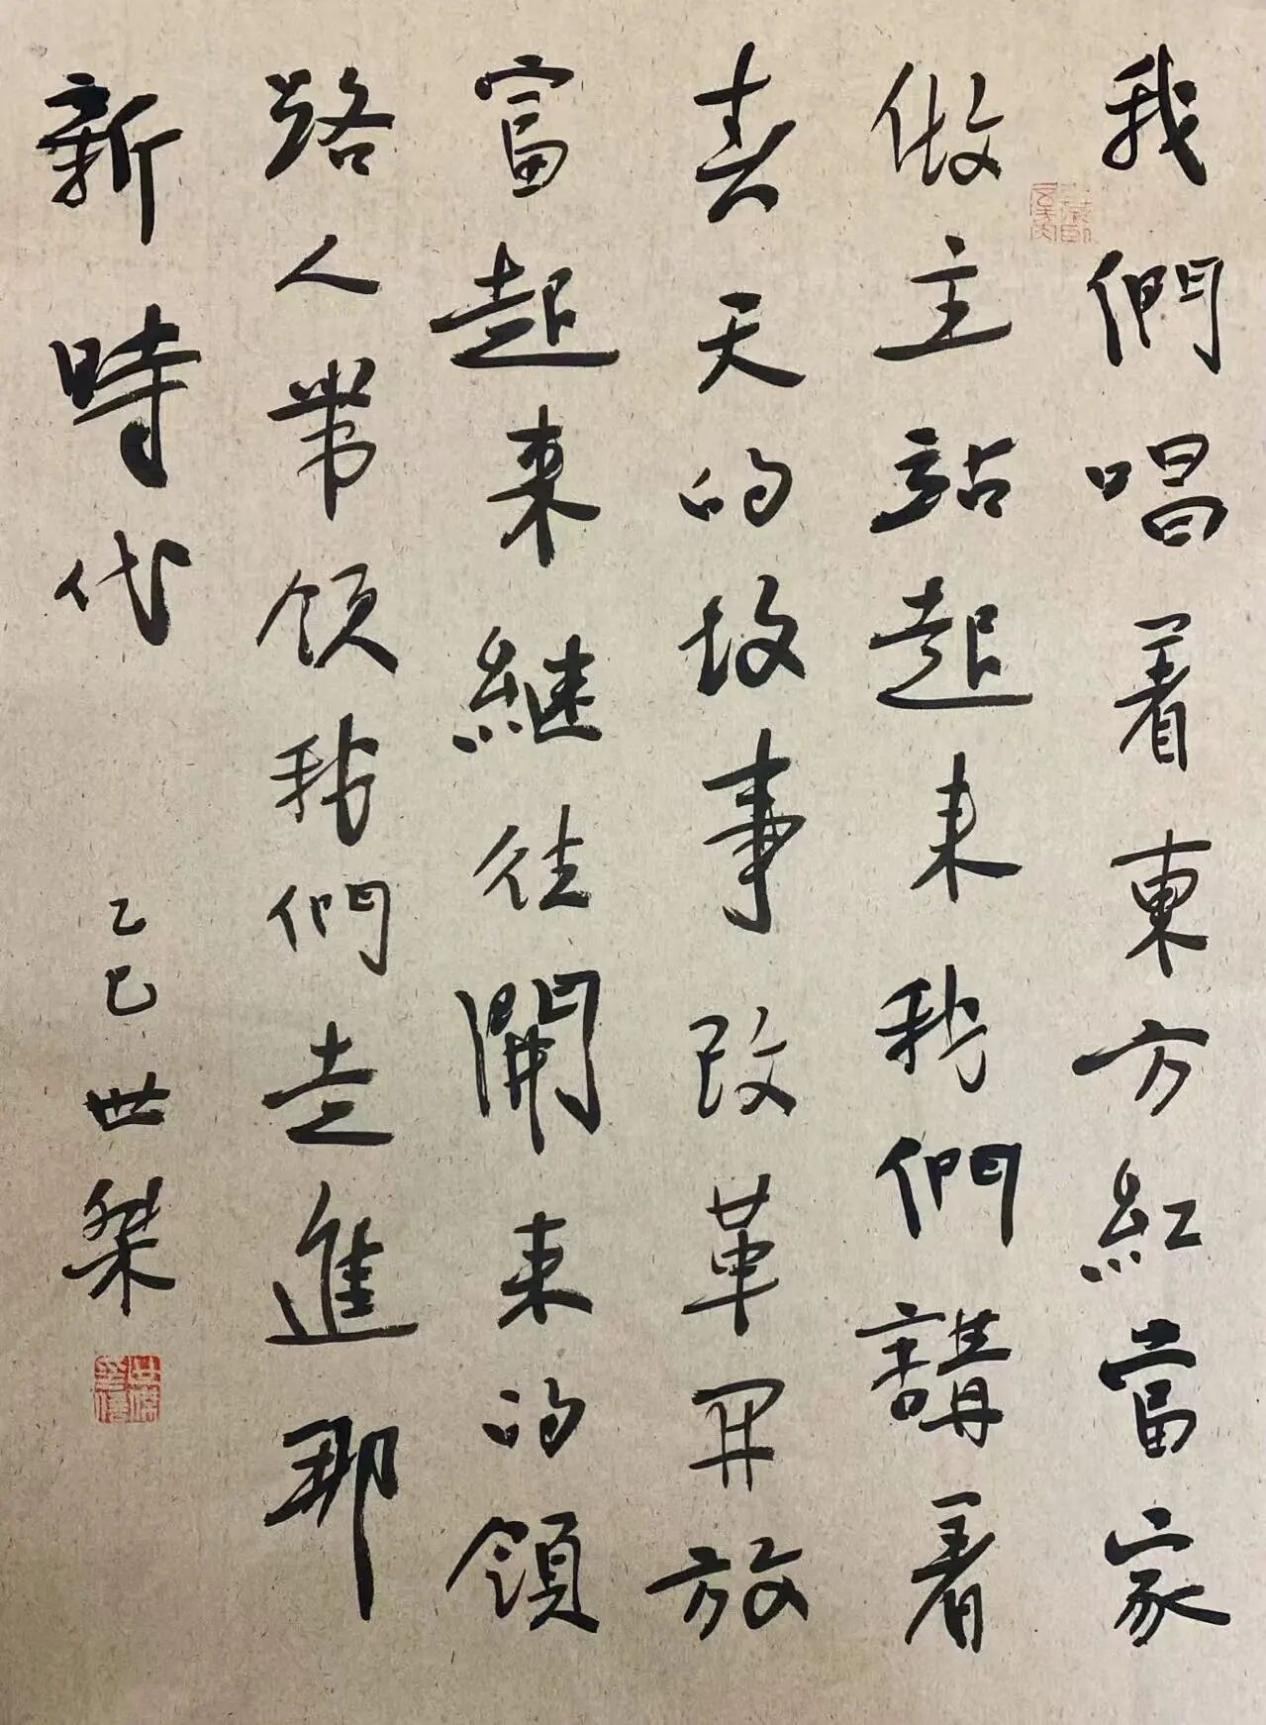 我們唱着東方紅當家
做主站起来我們講着
春天的故事改革開放
富起来繼往開来的領
路人帶領我們走進那
新時代
乙巳世桀